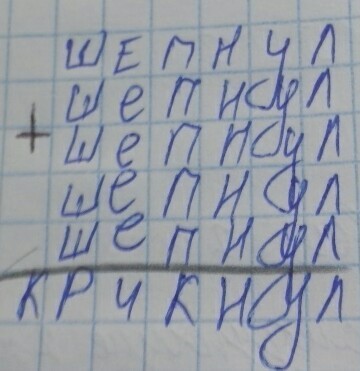 ШЕПНУЛ
ШЕПНУЛ
+
ШЕПНУЛ
ШЕПНУЛ
ШЕПНУЛ
КРИКНУЛ